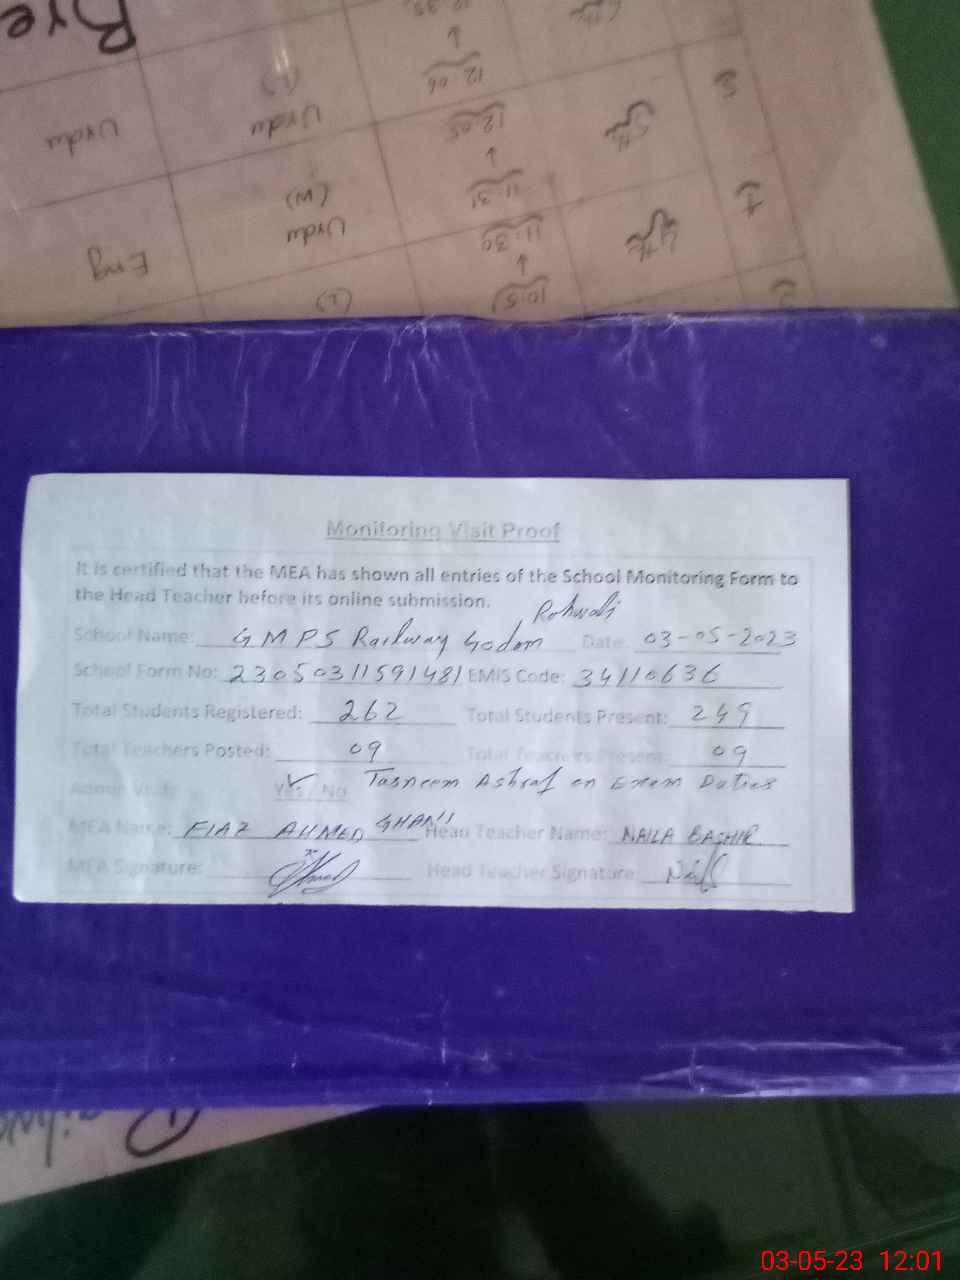 Bre
12:35
Urdu
Urdu
(L)
12:06
12:05
5
Eng
Urdu
(W)
11:31
11:30
4th
4
(L)
10:51
Monitoring Visit Proof
It is certified that the MEA has shown all entries of the School Monitoring Form to
the Head Teacher before its online submission.
School Name: GMPS Railway Godom, Rohwali Date: 03-05-2023
School Form No: 23050311591481 EMIS Code: 34110636
Total Students Registered: 262 Total Students Present: 249
Total Teachers Posted: 09 Total Teachers Present: 09
Admin Visit: Yes / No Tasneem Ashraf on Exam Duties
MEA Name: FIAZ AHMED GHANI Head Teacher Name: NAILA BASHIR
MEA Signature: Head Teacher Signature:
03-05-23 12:01